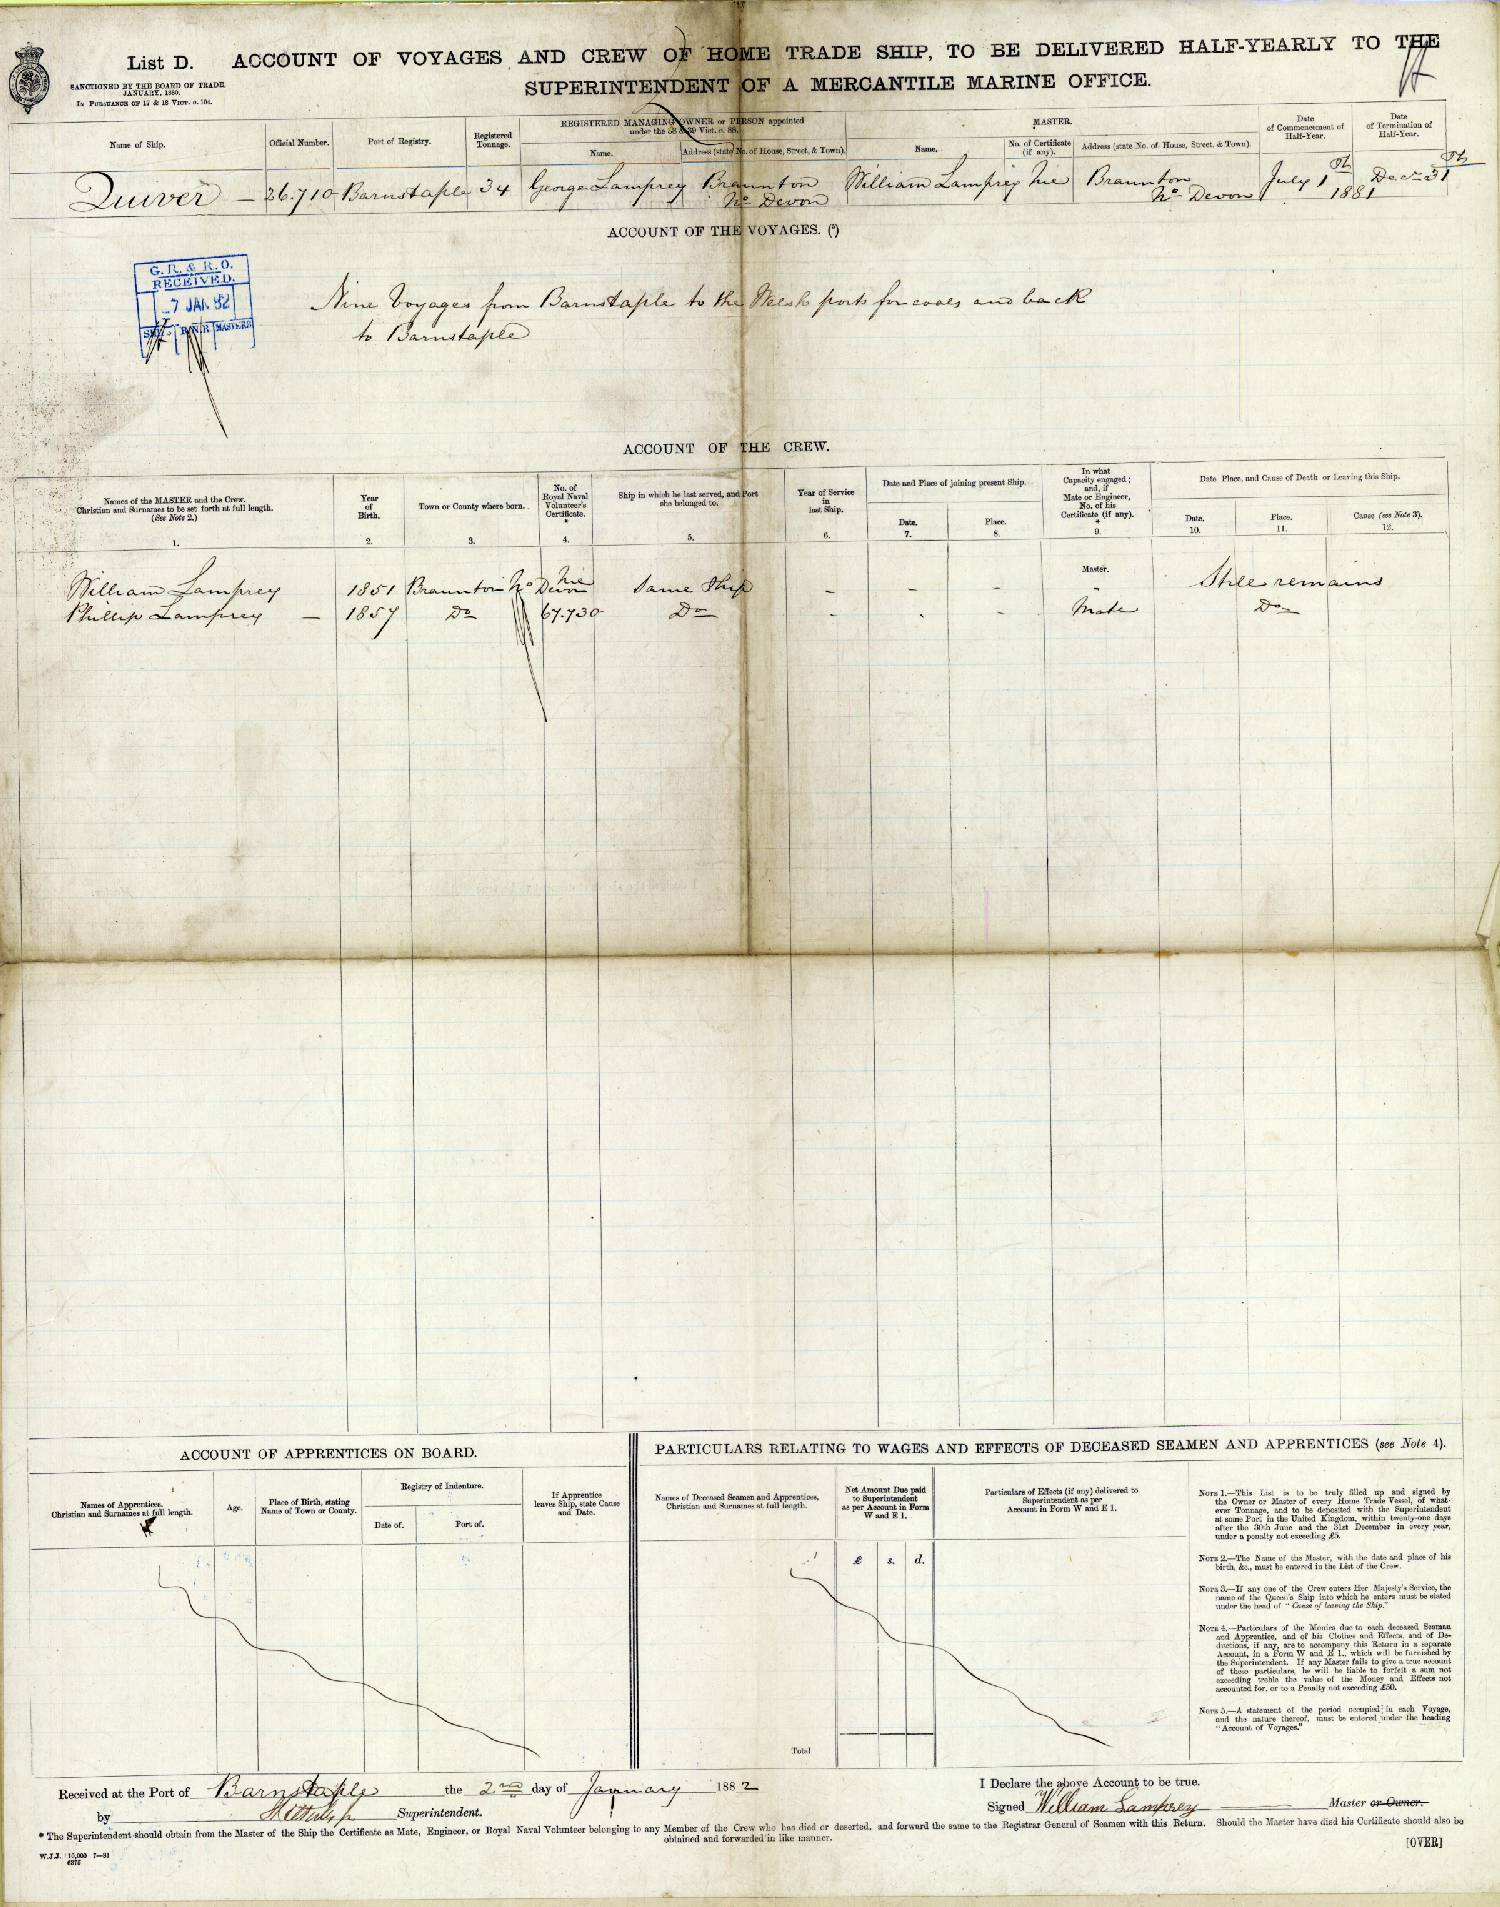 List D. ACCOUNT OF VOYAGES AND CREW OF HOME TRADE SHIP, TO BE DELIVERED HALF-YEARLY TO THE
SUPERINTENDENT OF A MERCANTILE MARINE OFFICE.
SANCTIONED BY THE BOARD OF TRADE
JANUARY, 1880.
IN PURSUANCE OF 17 & 18 VICT. c. 104.
Name of Ship.
Official Number.
Port of Registry.
Registered Tonnage.
REGISTERED MANAGING OWNER or PERSON appointed
under the 38 & 39 Vict. c. 88.
Name.
Address (state No. of House, Street, & Town).
MASTER.
Name.
No. of Certificate (if any).
Address (state No. of House, Street, & Town).
Date of Commencement of Half-Year.
Date of Termination of Half-Year.
Quiver — 26.710 Barnstaple 34 George Lamprey Braunton William Lamprey Braunton July 1 Decr 31
No Devon No Devon 1881
ACCOUNT OF THE VOYAGES. (5)
G. R. & R. O.
RECEIVED.
7 JAN 82
R.N.R MASTERS
Nine Voyages from Barnstaple to the Welsh ports for coals and back
to Barnstaple
ACCOUNT OF THE CREW.
Names of the MASTER and the Crew.
Christian and Surnames to be set forth at full length.
(See Note 2.)
1.
Year of Birth.
2.
Town or County where born.
3.
No. of Royal Naval Volunteer's Certificate.
*
4.
Ship in which he last served, and Port she belonged to.
5.
Year of Service in last Ship.
6.
Date and Place of joining present Ship.
Date.
7.
Place.
8.
In what Capacity engaged; and, if Mate or Engineer, No. of his Certificate (if any).
*
9.
Date Place, and Cause of Death or Leaving this Ship.
Date.
10.
Place.
11.
Cause (see Note 3).
12.
Master.
William Lamprey 1851 Braunton No Devon Same Ship - - - - Still remains
Phillip Lamprey — 1857 Do 67.730 Do - - - Mate Do
ACCOUNT OF APPRENTICES ON BOARD.
Names of Apprentices.
Christian and Surnames at full length.
Age.
Place of Birth, stating
Name of Town or County.
Registry of Indenture.
Date of.
Port of.
If Apprentice
leaves Ship, state Cause
and Date.
PARTICULARS RELATING TO WAGES AND EFFECTS OF DECEASED SEAMEN AND APPRENTICES (see Note 4).
Names of Deceased Seamen and Apprentices,
Christian and Surnames at full length.
Net Amount Due paid
to Superintendent
as per Account in Form
W and E 1.
£ s. d.
Particulars of Effects (if any) delivered to
Superintendent as per
Account in Form W and E 1.
Total
NOTE 1.—This List is to be truly filled up and signed by
the Owner or Master of every Home Trade Vessel, of what-
ever Tonnage, and to be deposited with the Superintendent
at some Port in the United Kingdom, within twenty-one days
after the 30th June and the 31st December in every year,
under a penalty not exceeding £5.
NOTE 2.—The Name of the Master, with the date and place of his
birth, &c., must be entered in the List of the Crew.
NOTE 3.—If any one of the Crew enters Her Majesty's Service, the
name of the Queen's Ship into which he enters must be stated
under the head of "Cause of leaving the Ship."
NOTE 4.—Particulars of the Monies due to each deceased Seaman
and Apprentice, and of his Clothes and Effects, and of De-
ductions, if any, are to accompany this Return in a separate
Account, in a Form W and E 1., which will be furnished by
the Superintendent. If any Master fails to give a true account
of these particulars, he will be liable to forfeit a sum not
exceeding treble the value of the Money and Effects not
accounted for, or to a Penalty not exceeding £50.
NOTE 5.—A statement of the period occupied in each Voyage,
and the nature thereof, must be entered under the heading
"Account of Voyages."
Received at the Port of Barnstaple the 2nd day of January 1882
by Superintendent.
I Declare the above Account to be true.
Signed William Lamprey Master or Owner.
* The Superintendent should obtain from the Master of the Ship the Certificate as Mate, Engineer, or Royal Naval Volunteer belonging to any Member of the Crew who has died or deserted, and forward the same to the Registrar General of Seamen with this Return. Should the Master have died his Certificate should also be
obtained and forwarded in like manner.
[OVER]
W.J.J. 10,000 7—81
6375